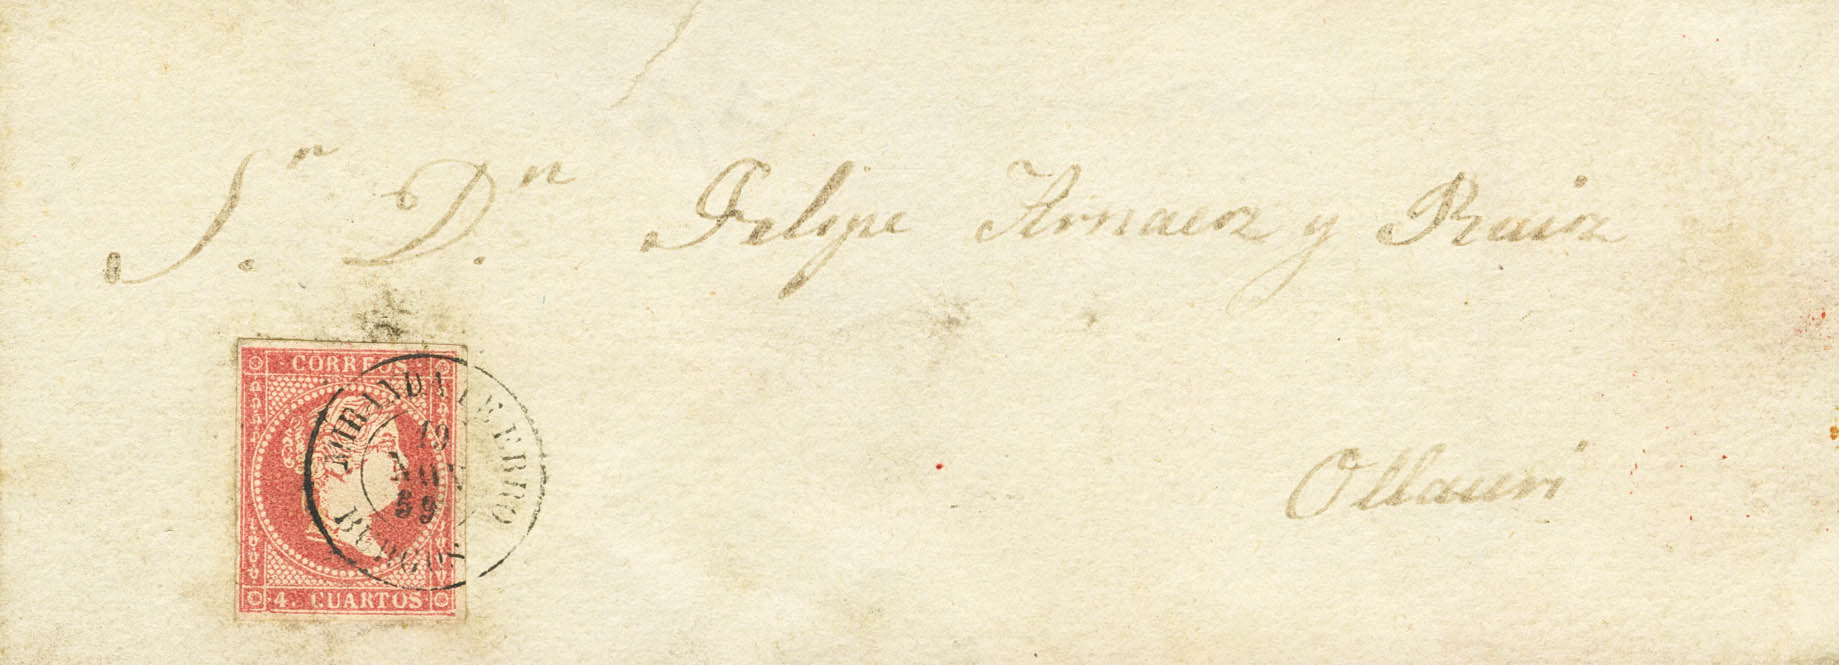 S.ʳ D.ⁿ Felipe Arnaez y Ruiz
CORREOS
MIRANDA DE EBRO
19
JUN
59
BURGOS
4 CUARTOS
Ollauri